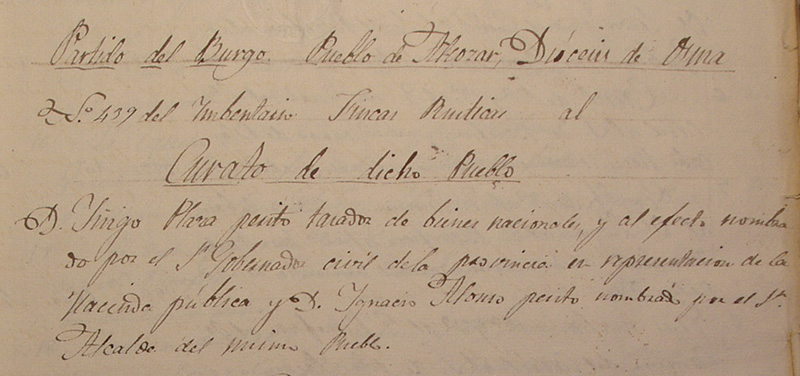 Partido del Burgo. Pueblo de Alcozar, Diócesis de Osma
Nº 439 del Imbentario Fincas Rusticas al
Curato de dicho Pueblo
D. Iñigo Plaza perito tasador de bienes nacionales, y al efecto nombra
do por el Sr Gobernador civil de la provincia en representacion de la
Hacienda pública y D. Ignacio Alonso perito nombrado por el Sr.
Alcalde del mismo Pueblo.